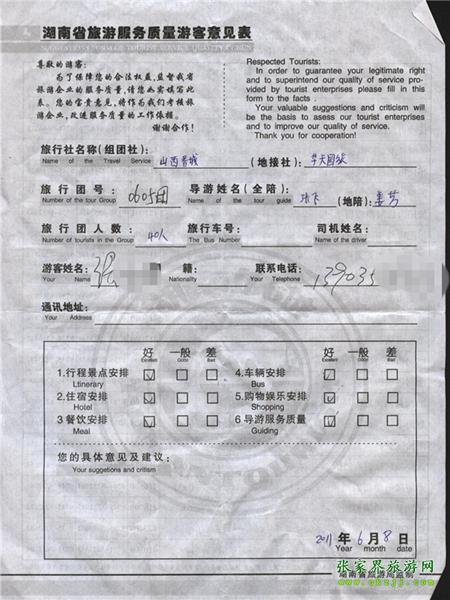 湖南省旅游服务质量游客意见表
尊敬的游客:
为了保障您的合法权益,监督我省
旅游企业的服务质量,请您如实填写此
表。您的宝贵意见,将作为我们考核旅
游企业,改进服务质量的工作依据。
谢谢合作!
Respected Tourists:
In order to guarantee your legitimate right
and to superintend our quality of service pro-
vided by tourist enterprises please fill in this
form to the facts .
Your valuable suggestions and criticism will
be the basis to assess our tourist enterprises
and to improve our quality of service.
Thank you for cooperation!
旅行社名称(组团社): 山西晋城 (地接社):
Name of the Travel Service
旅行团号: 0605团 导游姓名(全陪): (地陪):
Number of the tour Group Name of the tour guide
旅行团人数: 40人 旅行车号: 司机姓名:
Number of tourists in the Group The Bus Number Name of the driver
游客姓名: 张 籍: 联系电话: 139035
Your Name Nationality Your Telephone
通讯地址:
Your Address
好 一般 差 好 一般 差
Excellent Good Bad Excellent Good Bad
1.行程景点安排 4.车辆安排
Ltinerary Bus
2.住宿安排 5.购物娱乐安排
Hotel Shopping
3餐饮安排 6导游服务质量
Meal Guiding
您的具体意见及建议:
Your suggetions and critism
2011 年 6 月 8 日
Year month date
湖南省旅游局监制
张家界旅游网
www.zjjok.com